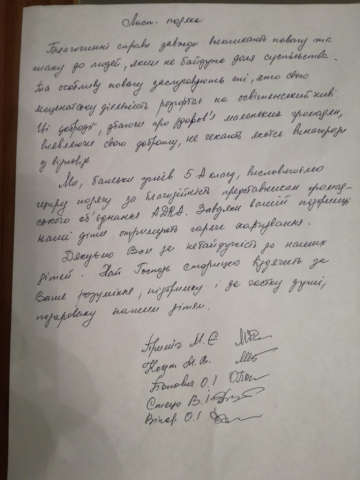 Лист-подяка
Благочинні справи завжди викликають повагу та
шану до людей, яким не байдужа доля суспільства.
Та особливу повагу заслуговують ті, хто свою
меценатську діяльність розгортає на освітянській ниві.
Ці добродії, дбаючи про здоров'я маленьких громадян,
виявляючи свою доброту, не чекають якоїсь винагороди
у відповідь.
Ми, батьки учнів 5-А класу, висловлюємо
щиру подяку за благодійність представникам громад-
ського об'єднання ADRA. Завдяки вашій підтримці
наші діти отримують гаряче харчування.
Дякуємо Вам за небайдужість до наших
дітей. Хай Господь сторицею віддячить за
Ваше розуміння, підтримку і за частку душі,
подаровану нашим дітям.
М. Є
Н. А.
О. І
Стецо В. І
О. І